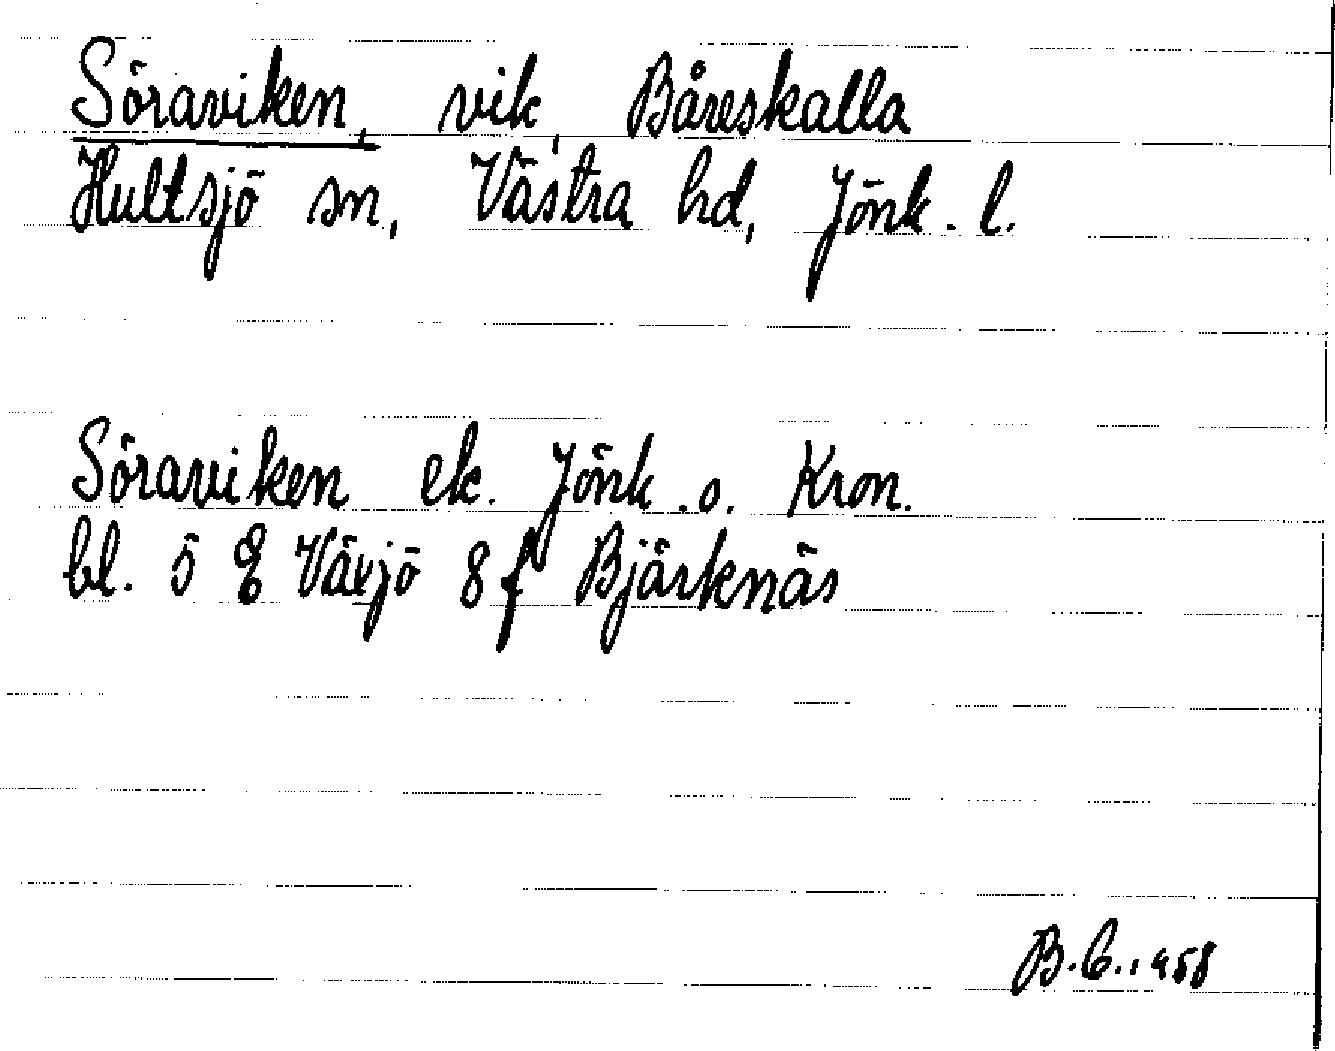 Söraviken, vik, Båreskalla
Hultsjö sn, Västra hd, Jönk. l.
Söraviken ek. Jönk. o. Kron.
bl. 5 E Växjö 8 f Bjärknäs
B.C. 1958